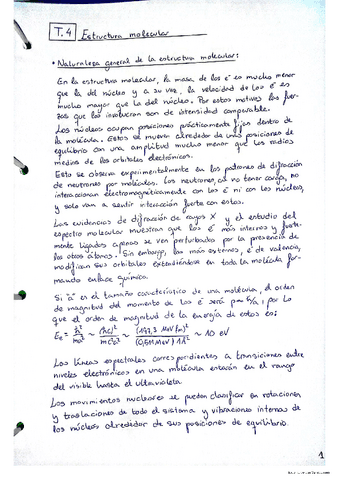 T.4 Estructura molecular
• Naturaleza general de la estructura molecular:
En la estructura molecular, la masa de los e⁻ es mucho menor
que la del núcleo y a su vez, la velocidad de los e⁻ es
mucho mayor que la del núcleo. Por estos motivos las fuer-
zas que los involucran son de intensidad comparable.
Los núcleos ocupan posiciones prácticamente fijas dentro de
la molécula. Estos se mueven alrededor de unas posiciones de
equilibrio con una amplitud mucho menor que los radios
medios de los orbitales electrónicos.
Esto se observa experimentalmente en los patrones de difracción
de neutrones por moléculas. Los neutrones, al no tener carga, no
interaccionan electromagnéticamente con los e⁻ ni con los núcleos,
y solo van a sentir interacción fuerte con estos.
Las evidencias de difracción de rayos X y el estudio del
espectro molecular muestran que los e⁻ más internos y fuerte-
mente ligados apenas se ven perturbados por la presencia de
los otros átomos. Sin embargo, los más externos, e⁻ de valencia,
modifican sus orbitales extendiéndose en toda la molécula for-
mando enlace químico.
Si "a" es el tamaño característico de una molécula, el orden
de magnitud del momento de los e⁻ será p ~ ħ/a, por lo
que el orden de magnitud de la energía de estos es:
Ee ~ ħ²/ma² ~ (ħc)²/mc²a² ~ (197,3 MeV fm)²/(0,511 MeV) 1Å² ~ 10 eV
Las líneas espectrales correspondientes a transiciones entre
niveles electrónicos en una molécula estarán en el rango
del visible hasta el ultravioleta.
Los movimientos nucleares se pueden clasificar en rotaciones
y traslaciones de todo el sistema y vibraciones internas de
los núcleos alrededor de sus posiciones de equilibrio.
1